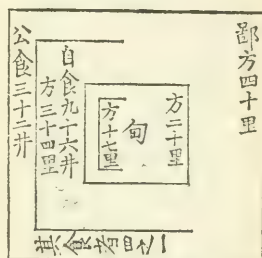 鄙方四十里
方二十里
甸
方十七里
自食九十六井
方三十四里
公食三十二井
其食者四之一